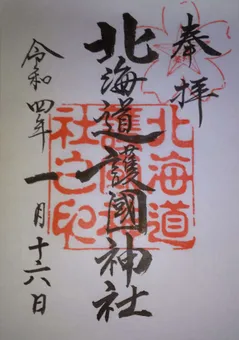 奉拝
北海道護國神社
北海道
護國神
社之印
令和四年一月十六日